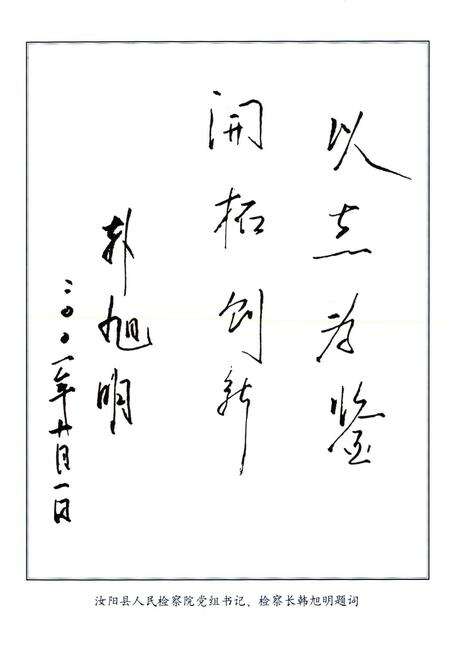 以志为鉴
開拓创新
韩旭明
二〇〇一年 月一日
汝阳县人民检察院党组书记、检察长韩旭明题词